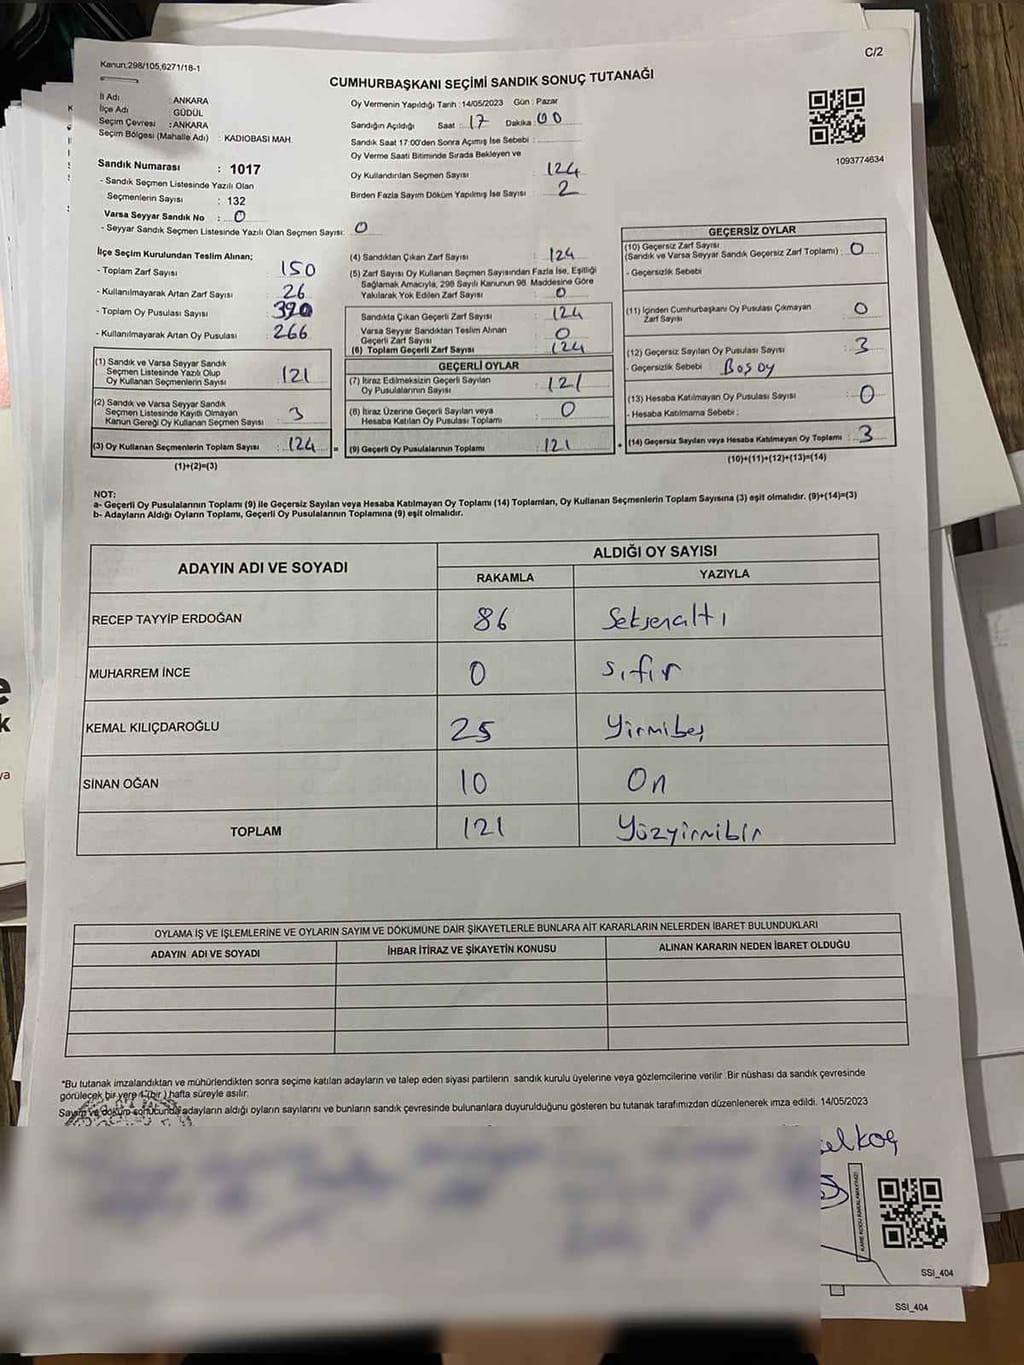 Kanun;298/105,6271/18-1
C/2
CUMHURBAŞKANI SEÇİMİ SANDIK SONUÇ TUTANAĞI
İl Adı : ANKARA
İlçe Adı : GÜDÜL
Seçim Çevresi : ANKARA
Seçim Bölgesi (Mahalle Adı) : KADIOBASI MAH.
Sandık Numarası : 1017
- Sandık Seçmen Listesinde Yazılı Olan
Seçmenlerin Sayısı : 132
Varsa Seyyar Sandık No : 0
- Seyyar Sandık Seçmen Listesinde Yazılı Olan Seçmen Sayısı: 0
Oy Vermenin Yapıldığı Tarih : 14/05/2023 Gün : Pazar
Sandığın Açıldığı Saat : 17 Dakika : 00
Sandık Saat 17:00'den Sonra Açımış İse Sebebi :
Oy Verme Saati Bitiminde Sırada Bekleyen ve
Oy Kullandırılan Seçmen Sayısı : 124
Birden Fazla Sayım Döküm Yapılmış İse Sayısı : 2
1093774634
İlçe Seçim Kurulundan Teslim Alınan;
- Toplam Zarf Sayısı : 150
- Kullanılmayarak Artan Zarf Sayısı : 26
- Toplam Oy Pusulası Sayısı : 390
- Kullanılmayarak Artan Oy Pusulası : 266
(1) Sandık ve Varsa Seyyar Sandık
Seçmen Listesinde Yazılı Olup
Oy Kullanan Seçmenlerin Sayısı : 121
(2) Sandık ve Varsa Seyyar Sandık
Seçmen Listesinde Kayıtlı Olmayan
Kanun Gereği Oy Kullanan Seçmen Sayısı : 3
(3) Oy Kullanan Seçmenlerin Toplam Sayısı : 124 =
(1)+(2)=(3)
(4) Sandıktan Çıkan Zarf Sayısı : 124
(5) Zarf Sayısı Oy Kullanan Seçmen Sayısından Fazla İse, Eşitliği
Sağlamak Amacıyla, 298 Sayılı Kanunun 98. Maddesine Göre
Yakılarak Yok Edilen Zarf Sayısı : 0
Sandıkta Çıkan Geçerli Zarf Sayısı : 124
Varsa Seyyar Sandıktan Teslim Alınan
Geçerli Zarf Sayısı : 0
(6) Toplam Geçerli Zarf Sayısı : 124
GEÇERLİ OYLAR
(7) İtiraz Edilmeksizin Geçerli Sayılan
Oy Pusulalarının Sayısı : 121
(8) İtiraz Üzerine Geçerli Sayılan veya
Hesaba Katılan Oy Pusulası Toplamı : 0
(9) Geçerli Oy Pusulalarının Toplamı : 121 +
GEÇERSİZ OYLAR
(10) Geçersiz Zarf Sayısı
(Sandık ve Varsa Seyyar Sandık Geçersiz Zarf Toplamı) : 0
- Geçersizlik Sebebi
(11) İçinden Cumhurbaşkanı Oy Pusulası Çıkmayan
Zarf Sayısı : 0
(12) Geçersiz Sayılan Oy Pusulası Sayısı : 3
- Geçersizlik Sebebi : Boş oy
(13) Hesaba Katılmayan Oy Pusulası Sayısı : 0
- Hesaba Katılmama Sebebi :
(14) Geçersiz Sayılan veya Hesaba Katılmayan Oy Toplamı : 3
(10)+(11)+(12)+(13)=(14)
NOT:
a- Geçerli Oy Pusulalarının Toplamı (9) ile Geçersiz Sayılan veya Hesaba Katılmayan Oy Toplamı (14) Toplamları, Oy Kullanan Seçmenlerin Toplam Sayısına (3) eşit olmalıdır. (9)+(14)=(3)
b- Adayların Aldığı Oyların Toplamı, Geçerli Oy Pusulalarının Toplamına (9) eşit olmalıdır.
ADAYIN ADI VE SOYADI ALDIĞI OY SAYISI
RAKAMLA YAZIYLA
RECEP TAYYİP ERDOĞAN 86 Seksenaltı
MUHARREM İNCE 0 Sıfır
KEMAL KILIÇDAROĞLU 25 Yirmibeş
SİNAN OĞAN 10 On
TOPLAM 121 Yüzyirmibir
OYLAMA İŞ VE İŞLEMLERİNE VE OYLARIN SAYIM VE DÖKÜMÜNE DAİR ŞİKAYETLERLE BUNLARA AİT KARARLARIN NELERDEN İBARET BULUNDUKLARI
ADAYIN ADI VE SOYADI İHBAR İTİRAZ VE ŞİKAYETİN KONUSU ALINAN KARARIN NEDEN İBARET OLDUĞU
*Bu tutanak imzalandıktan ve mühürlendikten sonra seçime katılan adayların ve talep eden siyasi partilerin sandık kurulu üyelerine veya gözlemcilerine verilir .Bir nüshası da sandık çevresinde
görülecek bir yere 1 (bir ) hafta süreyle asılır.
Sayım ve döküm sonucunda adayların aldığı oyların sayılarını ve bunların sandık çevresinde bulunanlara duyurulduğunu gösteren bu tutanak tarafımızdan düzenlenerek imza edildi. 14/05/2023
elkoç
KARE KODU KARALAMAYINIZ!
SSI_404
SSI_404